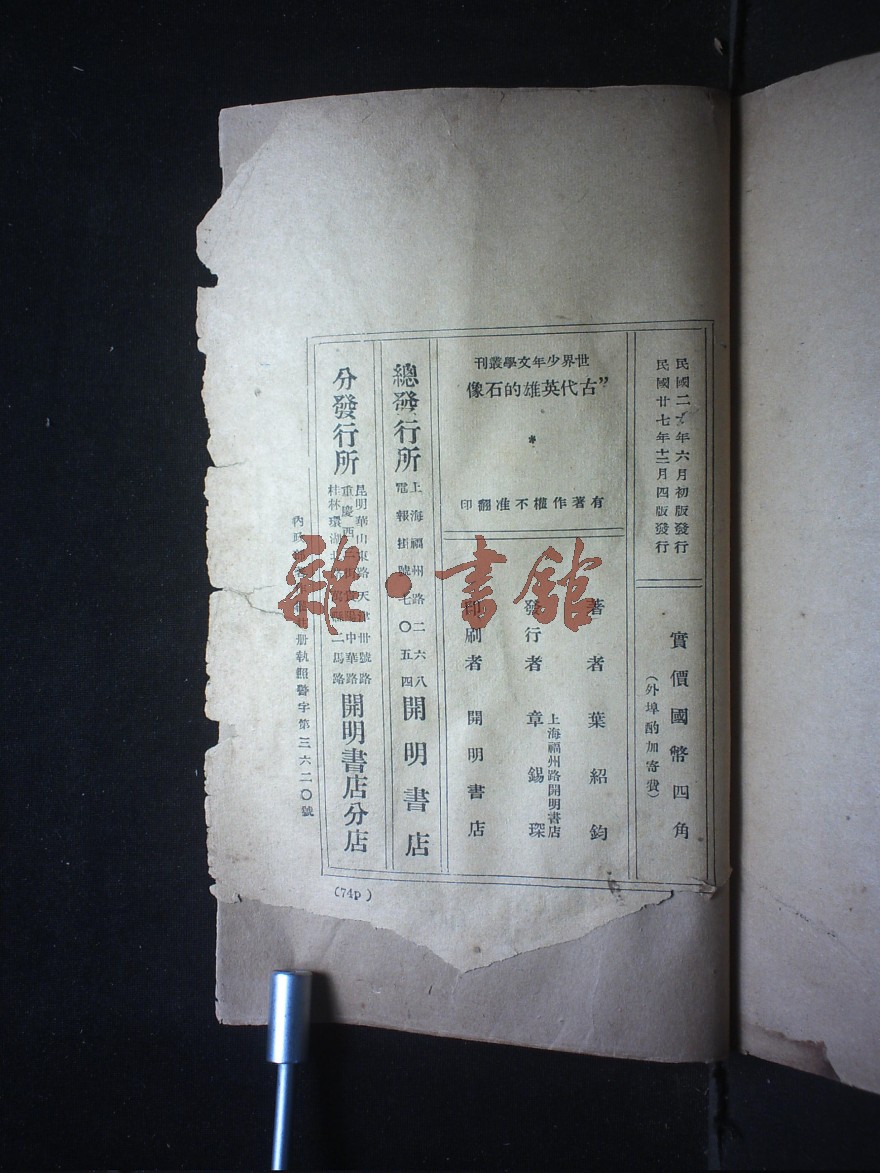 民國二 年六月初版發行
民國廿七年十二月四版發行
實價國幣四角
(外埠酌加寄費)
世界少年文學叢刊
”古代英雄的石像
*
有著作權不准翻印
著者 葉紹鈞
發行者 章錫琛
上海福州路開明書店
印刷者 開明書店
總發行所
上海福州路二六八
電報掛號七〇五四
開明書店
分發行所
昆明華山東路 天津卅號路
重慶西 中華路
桂林環湖 二馬路
開明書店分店
內 册執照警字第三六二〇號
(74P)
雜·書館